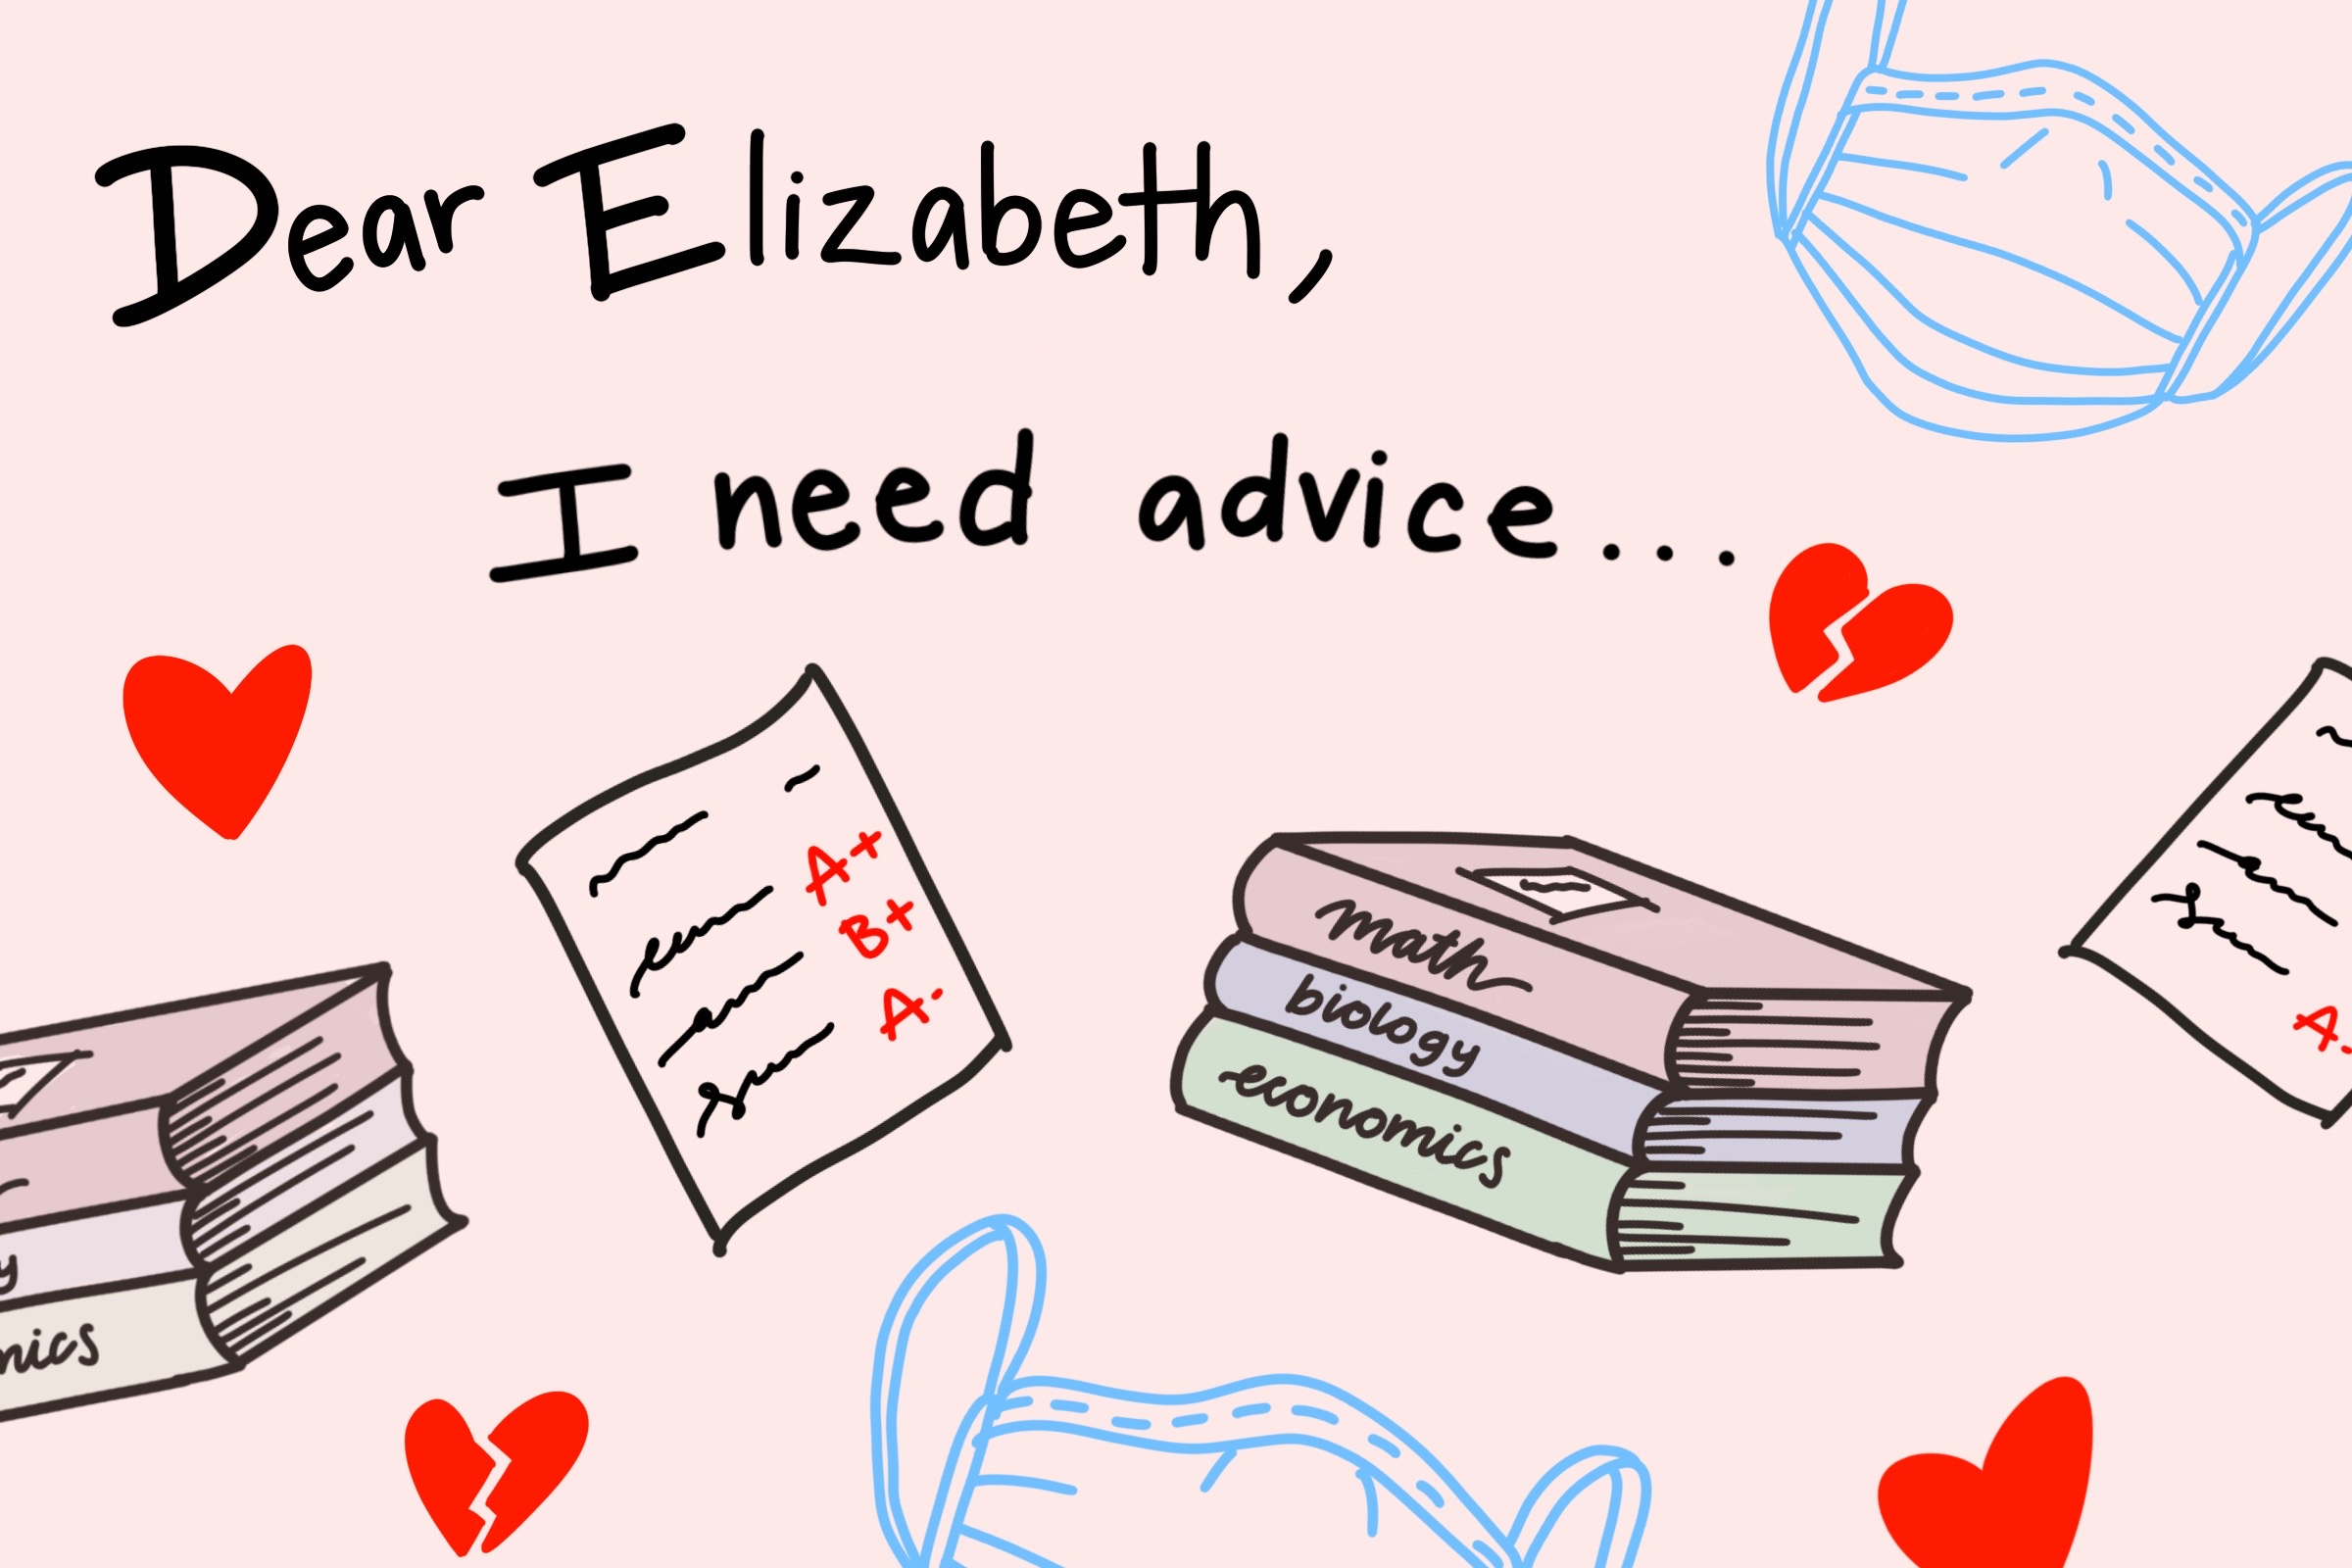 Dear Elizabeth,
I need advice...
A+
B+
A-
math
biology
economics
A-
y
mics